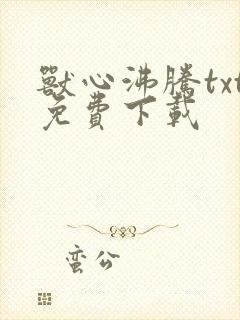 獸心沸騰txt
免費下載
蛮公